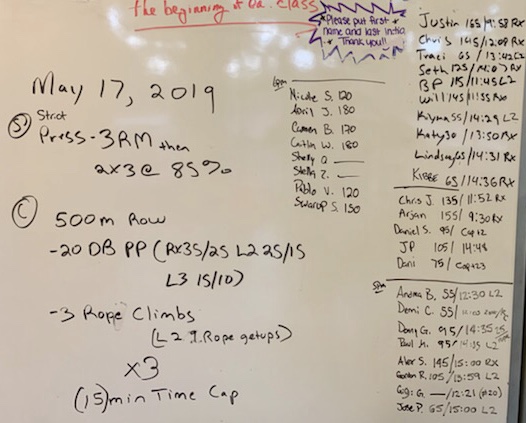 the beginning of ea. class
*Please put first
name and last initial
Thank you!!
May 17, 2019
(S) Strict
Press - 3RM then
2x3 @ 85%
(C)
500m Row
-20 DB PP (RX 35/25 L2 25/15
L3 15/10)
-3 Rope Climbs
(L2 Rope getups)
x3
(15)min Time Cap
Nicole S. 120
April J. 180
Carmen B. 170
Caitlin W. 180
Shelly Q. —
Stella Z. —
Pablo V. 120
Swarup S. 150
Justin 165/9:58 RX
Chris 145/12:09 RX
Traci 65 / 13:42 L2
Seth 125/14:07 RX
BP 115/11:45 L2
Will 145/11:55 RX
Kiyma 55/14:29 L2
Katy 30 / 13:50 RX
Lindsay 65/14:31 RX
KIBBE 65/14:36 RX
Chris J. 135/11:52 RX
Arjan 155/9:30 RX
Daniel S. 95/Cap+2
JP 105/14:48
Dani 75/Cap+23
5pm
Andrea B. 55/12:30 L2
Demi C. 55/
Doug G. 95/14:35
Paul H. 95/14:15 L2
Alex S. 145/15:00 RX
Gordon R. 105/13:59 L2
Gigi G. —/12:21 (#20)
Jose P. 65/15:00 L2